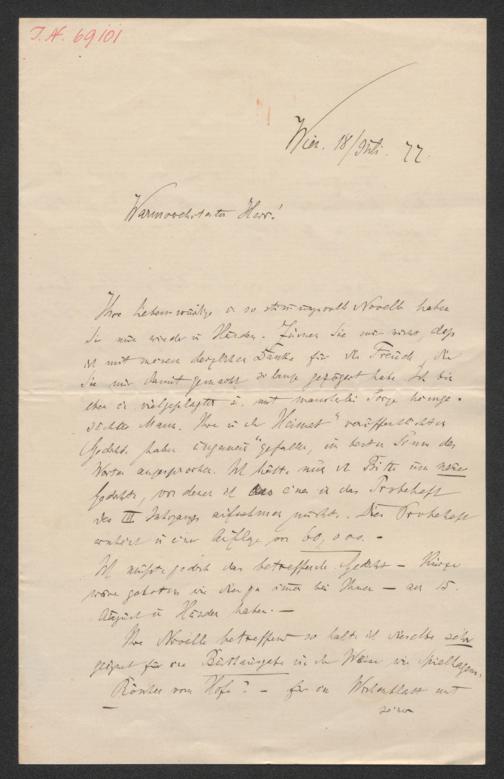 I.N. 69101
Wien. 18/Juli. 77.
Warmverehrter Herr!
Ihre liebenswürdige u so stimmungsvolle Novelle haben
Sie nun wieder in Händen. Zürnen Sie mir nicht, daß
ich mit meinem herzlichen Danke für die Freude, die
Sie mir damit gemacht so lange gezögert habe. Ich bin
eben ein vielgeplagter u. mit mancherlei Sorge heimge-
suchter Mann. Ihre in der „Heimat" veröffentlichten
Gedichte haben ungemein gefallen, im besten Sinne des
Wortes angesprochen. Ich hätte nun die Bitte um neue
Gedichte, von denen ich eines in das Probeheft
des III Jahrgangs aufnehmen möchte. Das Probeheft
erscheint in einer Auflage von 60,000. –
Ich müßte jedoch das betreffende Gedicht – Kürze
wäre geboten wie dies ja immer bei Ihnen – am 15.
August in Händen haben. –
Ihre Novelle betreffend so halte ich dieselbe sehr
geeignet für eine Buchausgabe in der Weise wie Spielhagens
Röschen vom Hofe? – für ein Wochenblatt mit
seinen